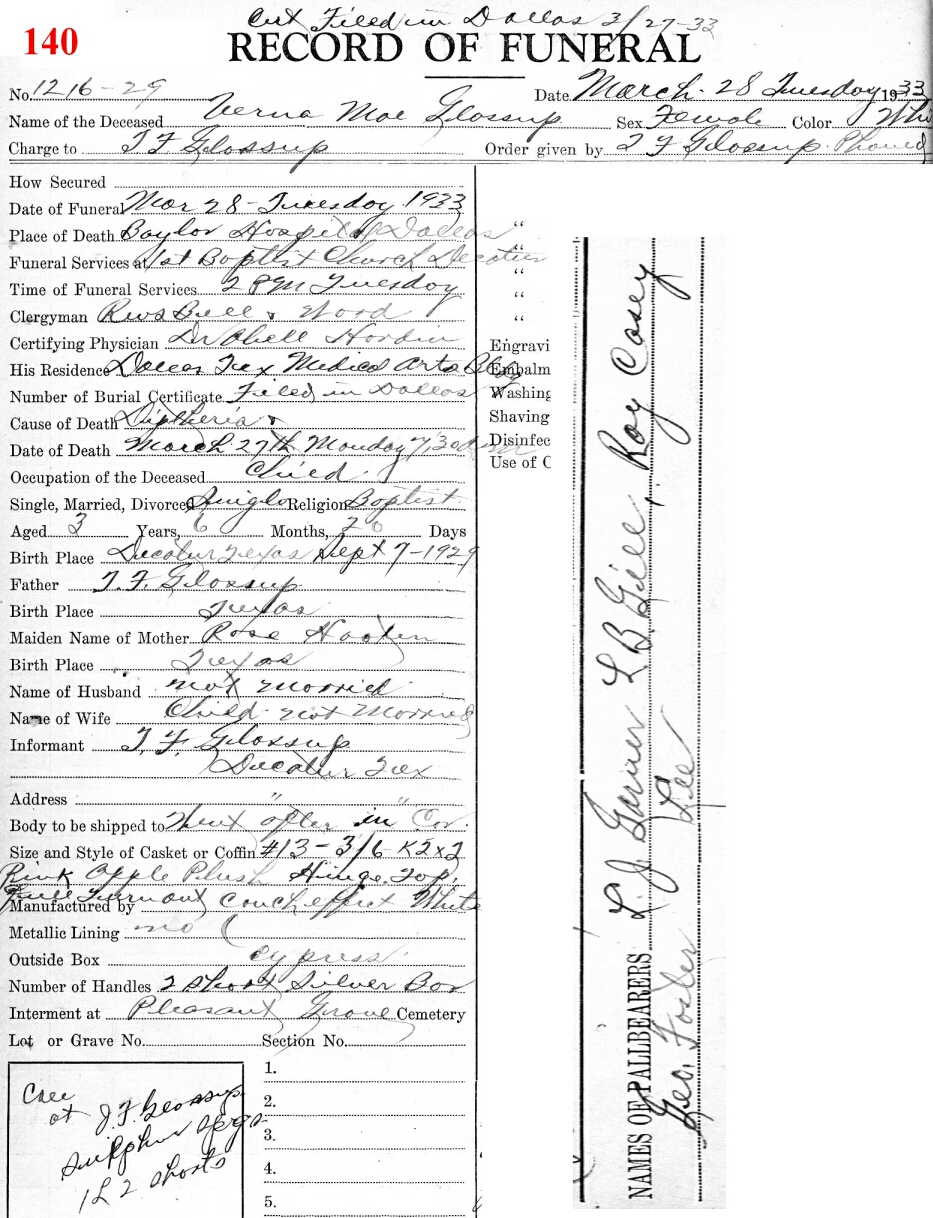 Cert Filed in Dallas 3/27-33
140
RECORD OF FUNERAL
No. 1216-29 Date March 28 Tuesday 1933
Name of the Deceased Verna Mae Glossup Sex Female Color Whi
Charge to T F Glossup Order given by T F Glossup Phoned
How Secured
Date of Funeral Mar 28 - Tuesday 1933
Place of Death Baylor Hospital Dallas "
Funeral Services at 1st Baptist Church Decatur "
Time of Funeral Services 2 PM Tuesday "
Clergyman Revs Bell & Word "
Certifying Physician Dr Abell Hardin Engravi
His Residence Dallas Tex Medical Arts Bldg Embalm
Number of Burial Certificate Filed in Dallas Washing
Cause of Death Diptheria Shaving
Date of Death March 27th Monday 7:30 Disinfec
Occupation of the Deceased Child Use of C
Single, Married, Divorced Single Religion Baptist
Aged 3 Years, 6 Months, 20 Days
Birth Place Decatur Texas Sept 7-1929
Father T. F. Glossup
Birth Place Texas
Maiden Name of Mother Rosa Hooten
Birth Place Texas
Name of Husband not married
Name of Wife Child-not Married
Informant T. F. Glossup
Decatur Tex
Address " "
Body to be shipped to Went after in Car
Size and Style of Casket or Coffin #13-3/6 K2x2
Pink Apple Plush Hinge Top.
Full Turnout couch effect White
Manufactured by
Metallic Lining no
Outside Box cypress
Number of Handles 2 Short Silver Bar
Interment at Pleasant Grove Cemetery
Lot or Grave No. Section No.
1.
2.
3.
4.
5.
Call
at J. F. Glossup
Sulphur Spgs
1L 2 shorts
NAMES OF PALLBEARERS L. J. Garner L. B. Gill, Roy Casey
Geo. Foster Lee